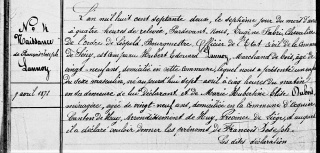 N° 4
Naissance
de François Joseph
Lannoy
7 avril 1872
L'an mil huit cent septante deux, le septième jour du mois d'avril
à quatre heures de relevée, Pardevant Nous,
de l'ordre de Léopold, Bourgmestre, Officier de l'Etat civil de la Commune
de Huy, est comparu Hubert Edouard Lannoy, Marchand de bois, âgé de
vingt neuf ans, domicilié en cette commune, lequel nous a présenté un enfant
du sexe masculin, né aujourd'hui sept avril à cinq heures du matin
en sa demeure de lui Déclarant et de Marie Hubertine Elise Dubois
ménagère, âgée de vingt neuf ans, domiciliée en la Commune
Canton de Huy, Arrondissement de Huy, Province de Liège, et auquel
il a déclaré vouloir donner les prénoms de François Joseph.
Les dites déclaration